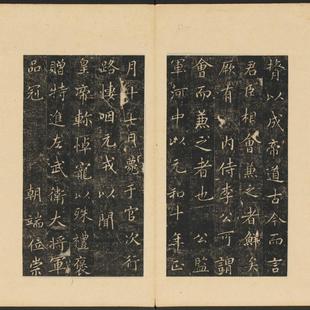 贊以成帝道古今而言
君臣相會兼之者鮮矣
厥有 內侍李公可謂
會而兼之者也 公監
軍河中以元和十年正
月十七日薨于官次行
路悽咽元戎以聞
皇帝軫悼寵以殊禮褒
贈特進左武衛大將軍
品冠 朝端位崇